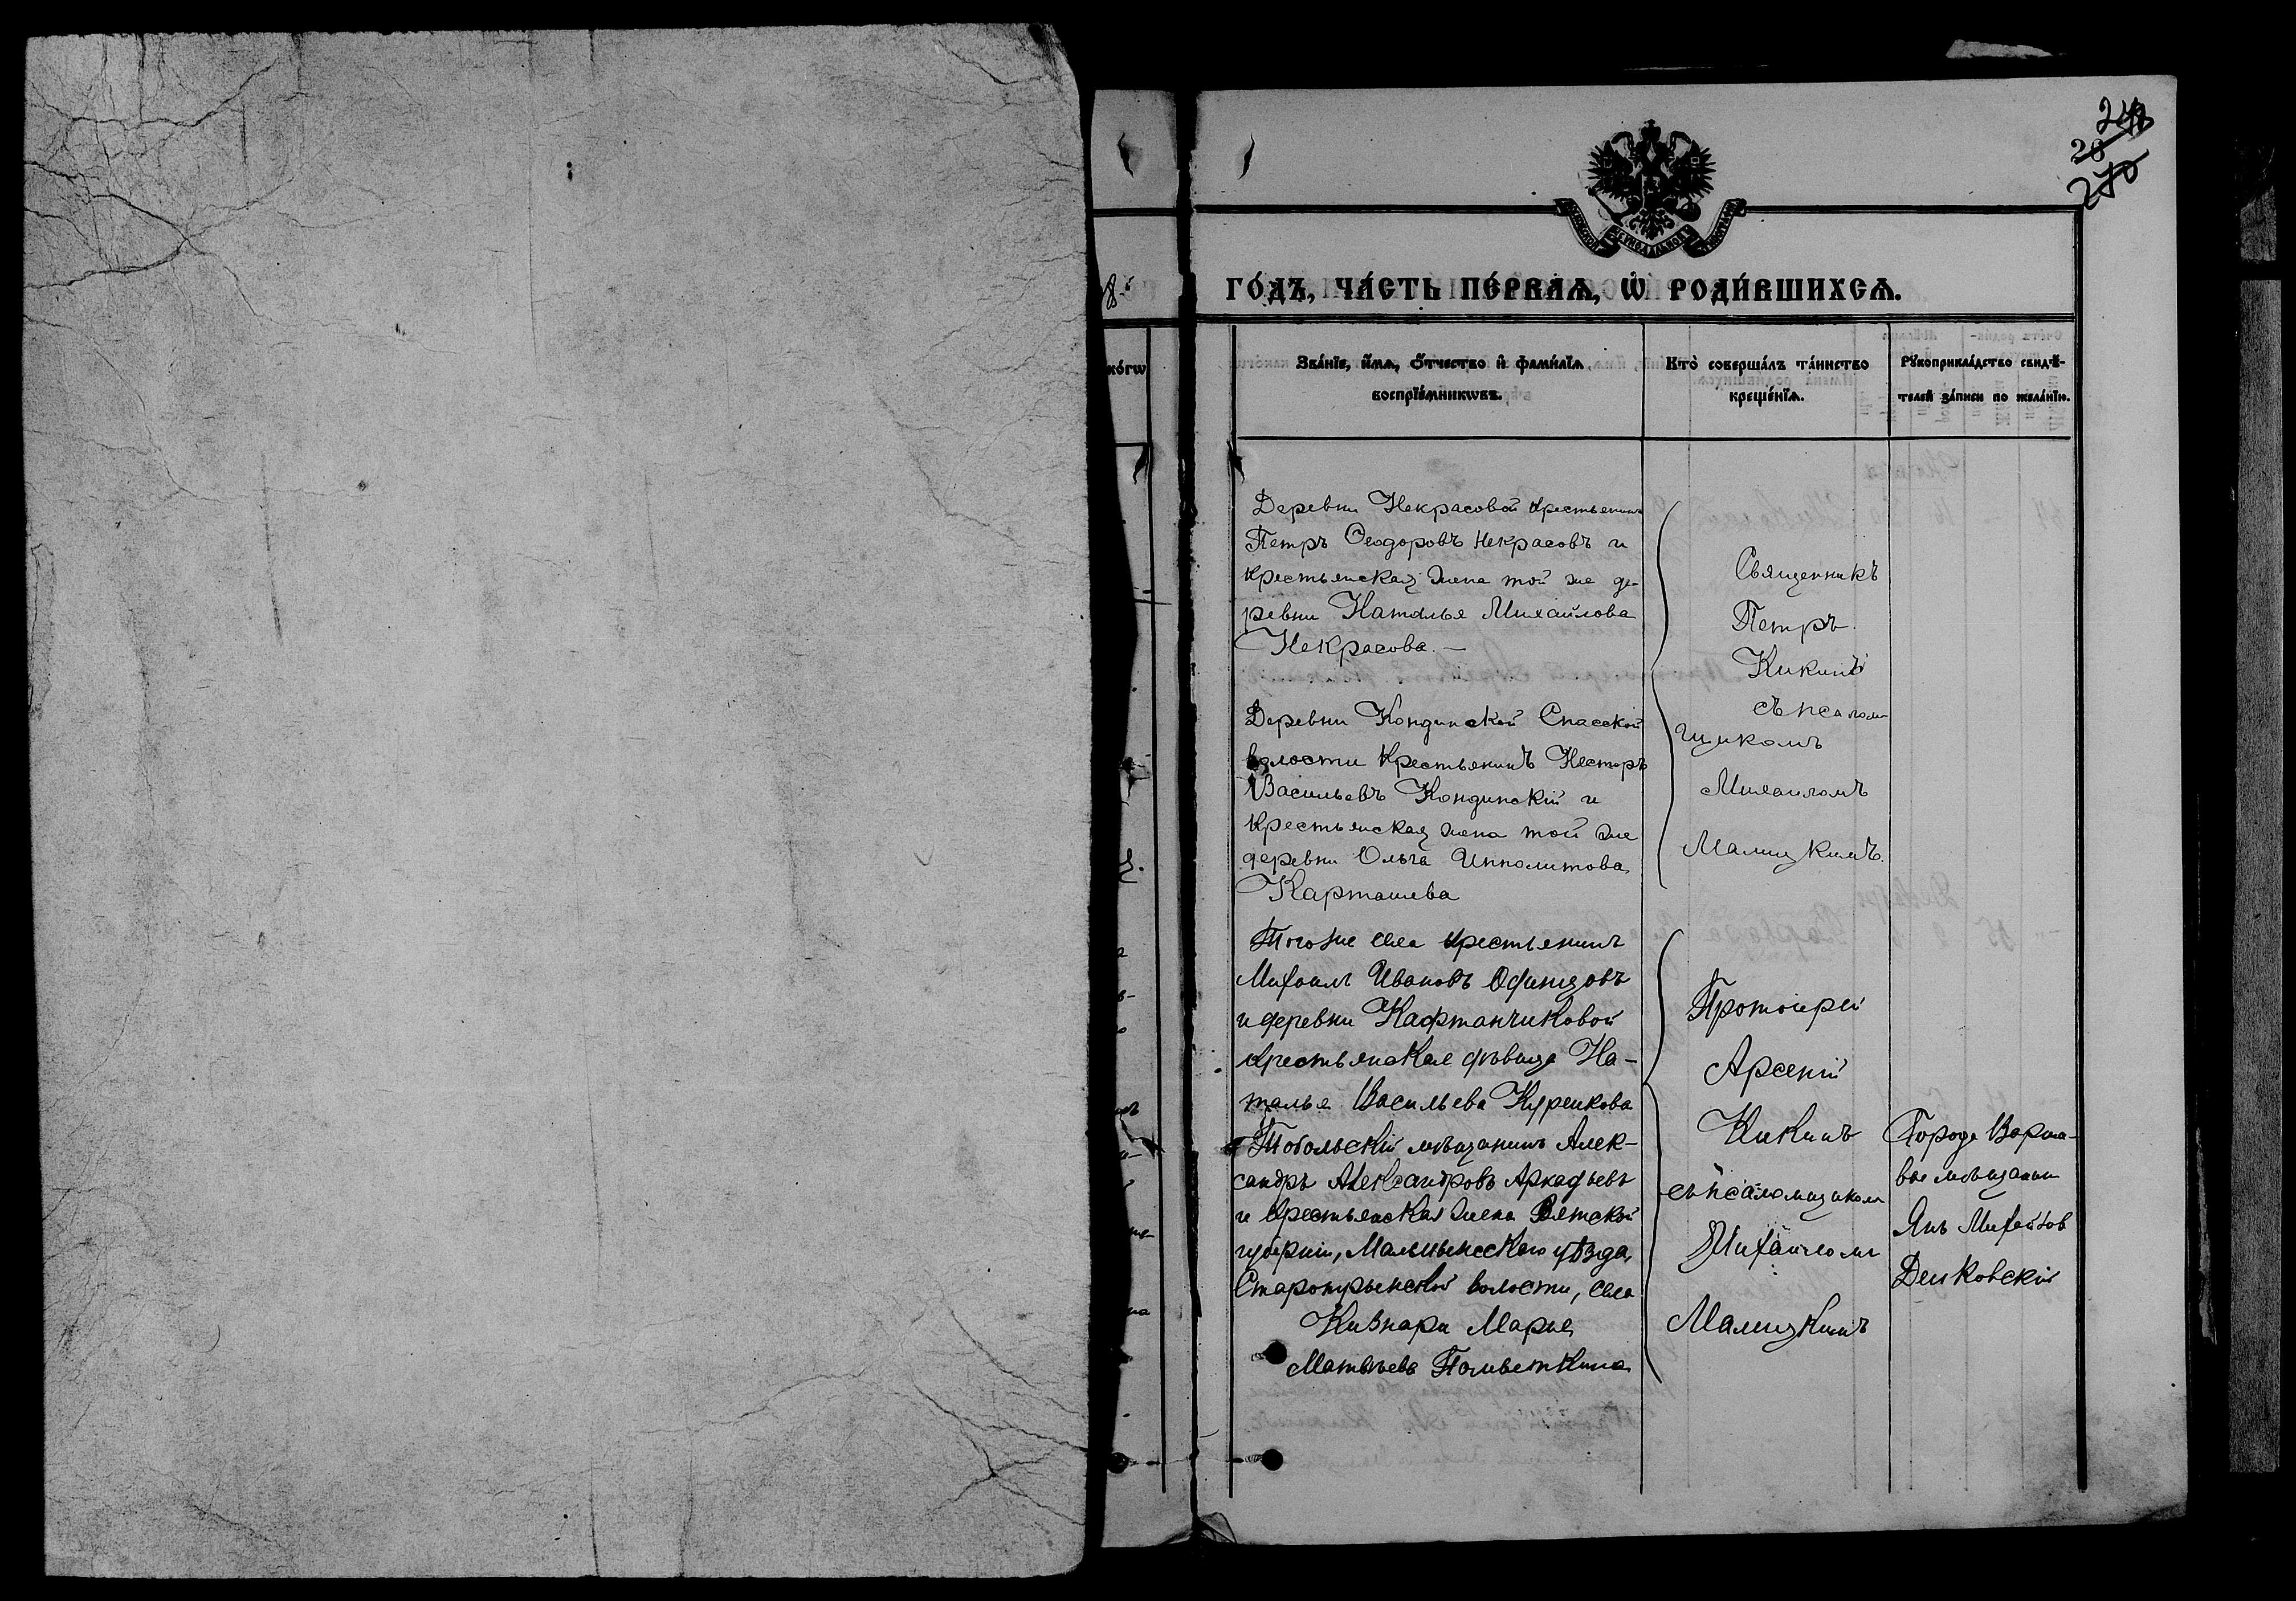 ГО́ДЪ, ЧА́СТЬ ПЕ́РВАѦ, Ѡ҆ РОДИ́ВШИХСѦ.
ко́гѡ
Зва́нїе, и҆́мѧ, ѻ҆́тчество и҆ фами́лїѧ
воспрїе́мникѡвъ.
Кто̀ соверша́лъ та́инство
креще́нїѧ.
Рꙋкоприкла́дство свидѣ́-
телей за́писи по жела́нїю.
Деревни Некрасовой крестьянинъ
Петръ Ѳеодоровъ Некрасовъ и
крестьянская жена той же де-
ревни Наталья Михайлова
Некрасова. —
Деревни Кондинской Спасской
волости крестьянинъ Несторъ
Васильевъ Кондинскій и
крестьянская жена той же
деревни Ольга Ипполитова
Карташева
Священникъ
Петръ
Кикинъ
съ псалом-
щикомъ
Михаиломъ
Малицкимъ.
Того же села крестьянинъ
Михаилъ Ивановъ Одинцовъ
и деревни Кафтанчиковой
крестьянская дѣвица На-
талья Васильева Куренкова
Тобольскій мѣщанинъ Алек-
сандръ Александровъ Аркадьевъ
и крестьянская жена Вятской
губерніи, Малмыжскаго уѣзда,
волости, села
Кизнари Марья
Матвѣева
Протоіерей
Арсеній
Кикинъ
съ псаломщикомъ
Михаиломъ
Малицкимъ
Города Варша-
вы мѣщанин
Янъ